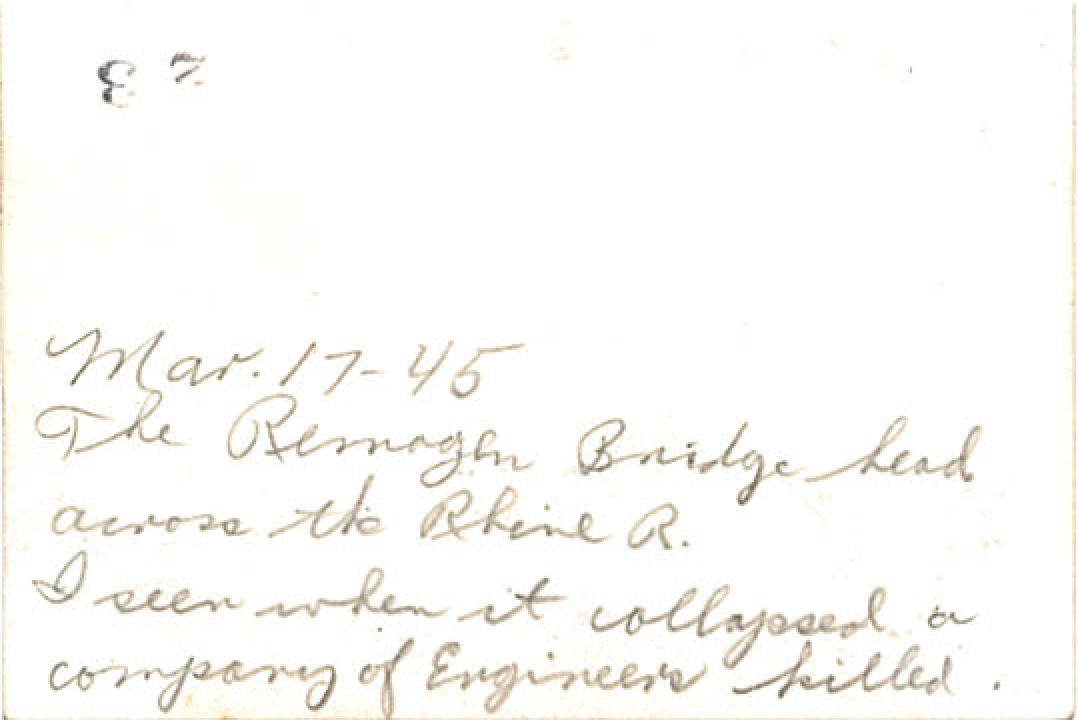 32
Mar. 17-45
The Remagen Bridge head
across the Rhine R.
I seen when it collapsed a
company of Engineers killed.